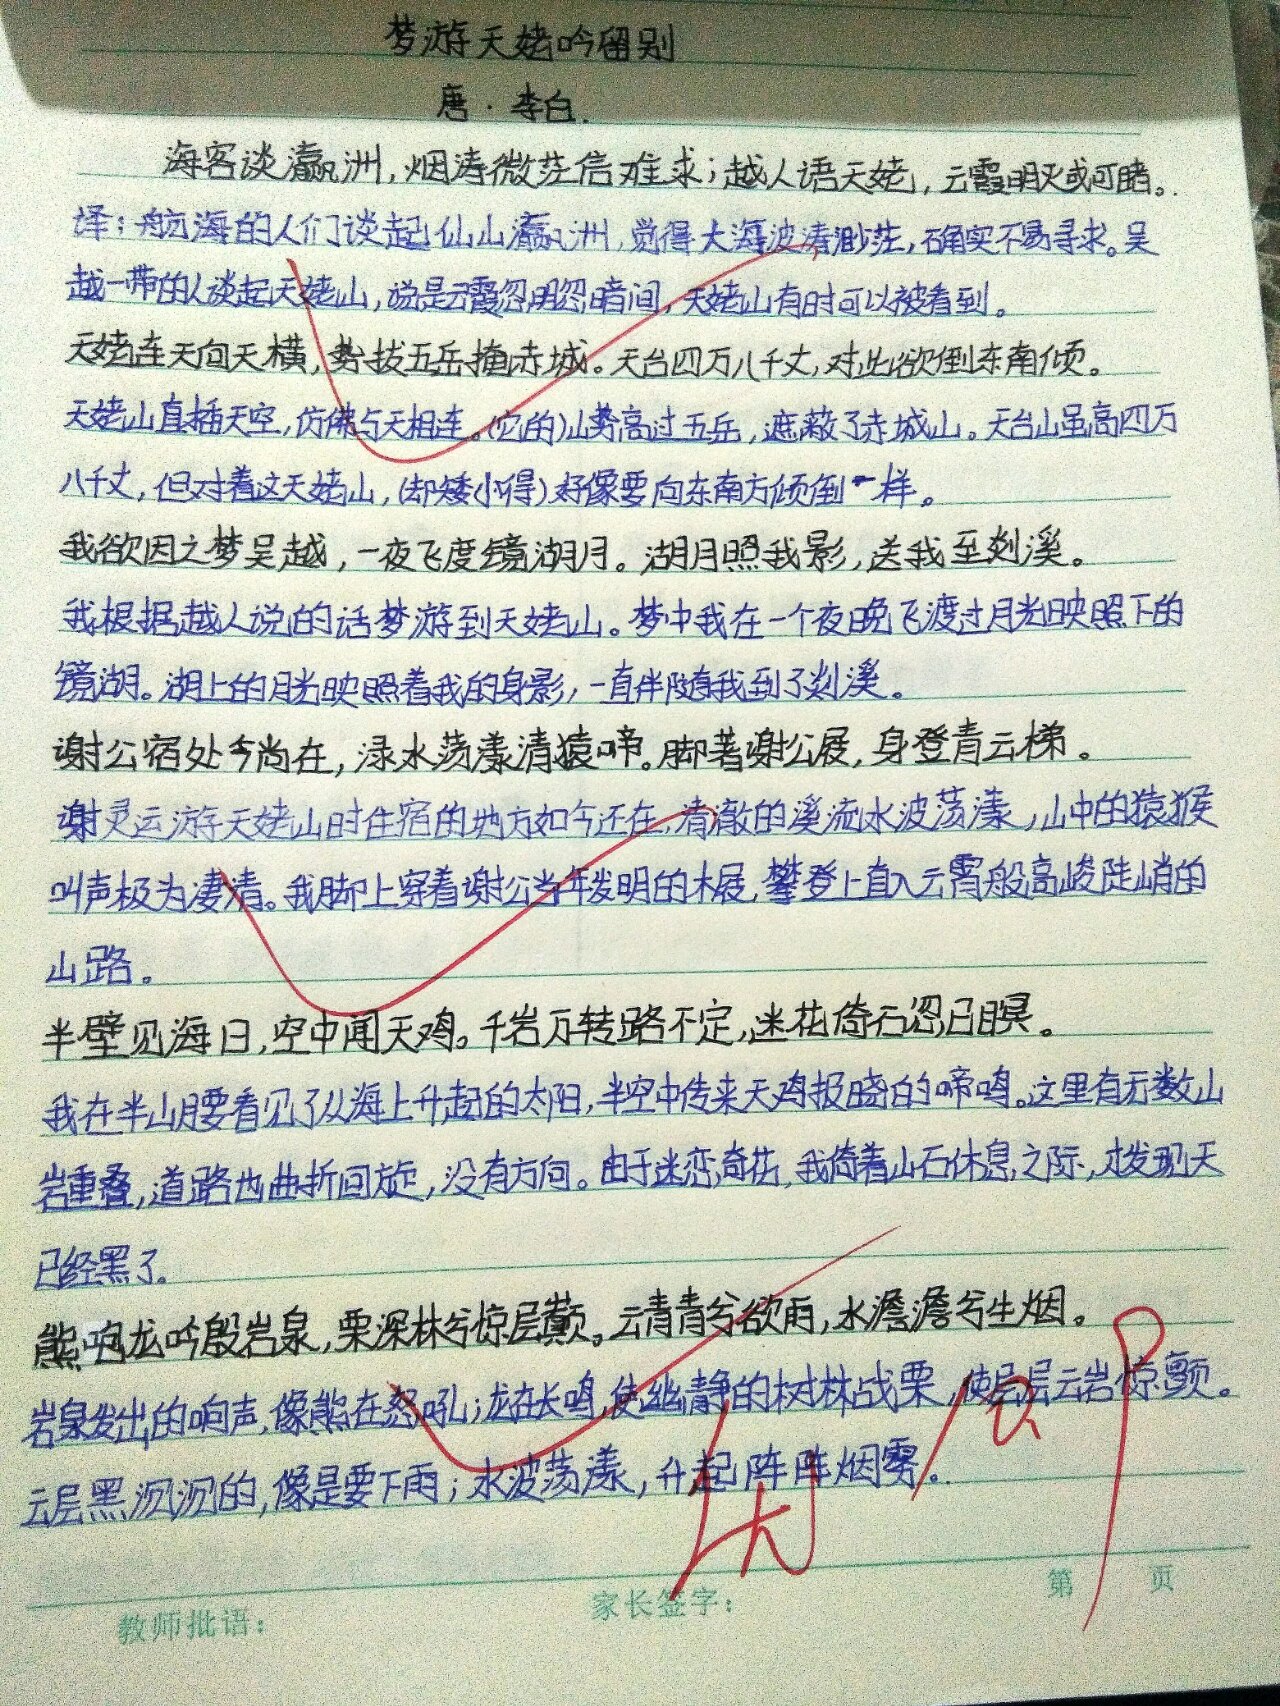 梦游天姥吟留别
唐·李白.
海客谈瀛洲,烟涛微茫信难求;越人语天姥,云霞明灭或可睹。
译:航海的人们谈起仙山瀛洲,觉得大海波涛渺茫,确实不易寻求。吴
越一带的人谈起天姥山,说是云霞忽明忽暗间,天姥山有时可以被看到。
天姥连天向天横,势拔五岳掩赤城。天台四万八千丈,对此欲倒东南倾。
天姥山直插天空,仿佛与天相连。(它的)山势高过五岳,遮蔽了赤城山。天台山虽高四万
八千丈,但对着这天姥山,(却矮小得)好像要向东南方倾倒一样。
我欲因之梦吴越,一夜飞度镜湖月。湖月照我影,送我至剡溪。
我根据越人说的话梦游到天姥山。梦中我在一个夜晚飞渡过月光映照下的
镜湖。湖上的月光映照着我的身影,一直伴随我到了剡溪。
谢公宿处今尚在,渌水荡漾清猿啼。脚著谢公屐,身登青云梯。
谢灵运游天姥山时住宿的地方如今还在,清澈的溪流水波荡漾,山中的猿猴
叫声极为凄清。我脚上穿着谢公当年发明的木屐,攀登上直入云霄般高峻陡峭的
山路。
半壁见海日,空中闻天鸡。千岩万转路不定,迷花倚石忽已暝。
我在半山腰看见了从海上升起的太阳,半空中传来天鸡报晓的啼鸣。这里有无数山
岩重叠,道路也曲折回旋,没有方向。由于迷恋奇花,我倚着山石休息之际,才发现天
已经黑了。
熊咆龙吟殷岩泉,栗深林兮惊层巅。云青青兮欲雨,水澹澹兮生烟。
岩泉发出的响声,像熊在怒吼;龙在长鸣,使幽静的树林战栗,使层层云岩惊颤。
云层黑沉沉的,像是要下雨;水波荡漾,升起阵阵烟雾。
教师批语: 家长签字: 第 页